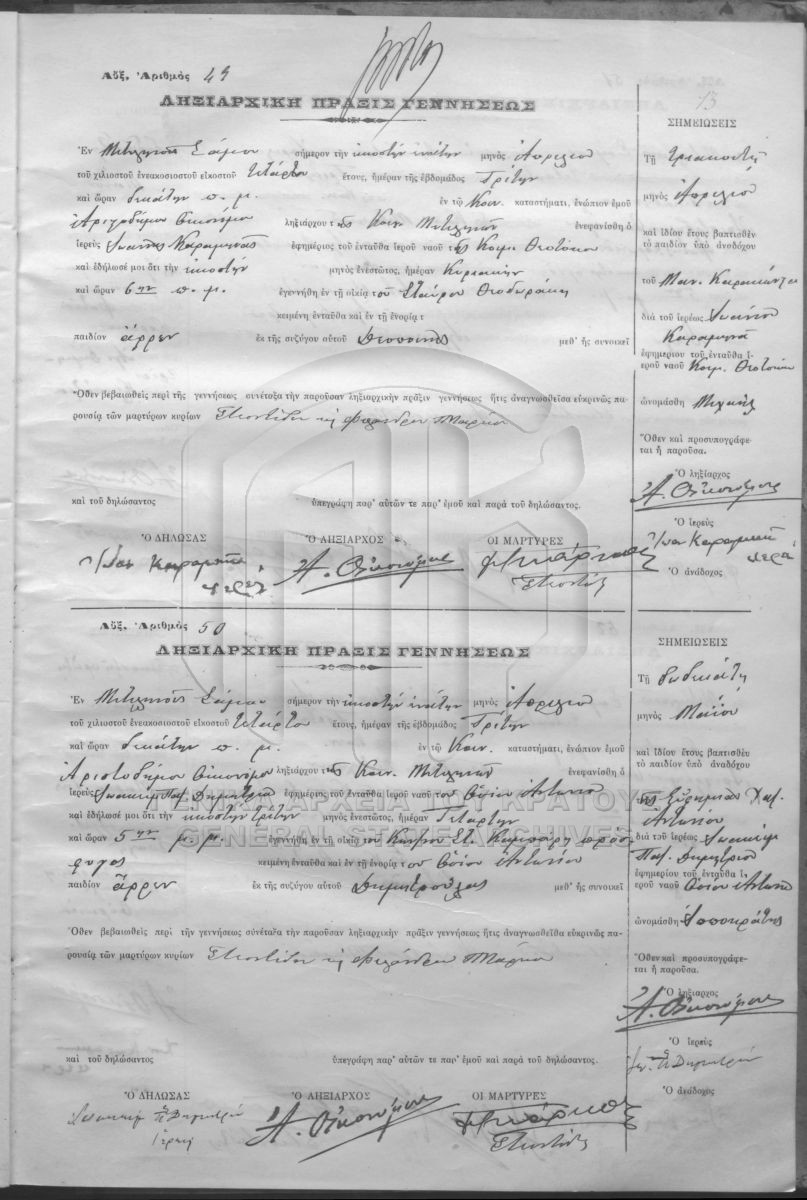 Αὔξ. Ἀριθμὸς 49
13
ΛΗΞΙΑΡΧΙΚΗ ΠΡΑΞΙΣ ΓΕΝΝΗΣΕΩΣ
Ἐν Μυτιληνιοῖς Σάμου σήμερον τὴν εἰκοστὴν ἐνάτην μηνὸς Ἀπριλίου
τοῦ χιλιοστοῦ ἐνεακοσιοστοῦ εἰκοστοῦ τετάρτου ἔτους, ἡμέραν τῆς ἑβδομάδος Τρίτην
καὶ ὥραν δεκάτην π. μ. ἐν τῷ Κοιν. καταστήματι, ἐνώπιον ἐμοῦ
Ἀριστοδήμου Οἰκονόμου ληξιάρχου τῆς Κοιν. Μυτιληνιῶν ἐνεφανίσθη ὁ
ἱερεὺς Ἰωάννης Καραμηνᾶς ἐφημέριος τοῦ ἐνταῦθα ἱεροῦ ναοῦ τῆς Κοιμ. Θεοτόκου
καὶ ἐδήλωσέ μοι ὅτι τὴν εἰκοστὴν μηνὸς ἐνεστῶτος, ἡμέραν Κυριακὴν
καὶ ὥραν 6ην π. μ. ἐγεννήθη ἐν τῇ οἰκίᾳ τοῦ Σταύρου Θεοδωράκη
κειμένῃ ἐνταῦθα καὶ ἐν τῇ ἐνορίᾳ τ
παιδίον ἄρρεν ἐκ τῆς συζύγου αὐτοῦ Δεσποίνης μεθ' ἧς συνοικεῖ
Ὅθεν βεβαιωθεὶς περὶ τῆς γεννήσεως συνέταξα τὴν παροῦσαν ληξιαρχικὴν πρᾶξιν γεννήσεως ἥτις ἀναγνωσθεῖσα εὐκρινῶς πα-
ρουσίᾳ τῶν μαρτύρων κυρίων Μάρκου
καὶ τοῦ δηλώσαντος ὑπεγράφη παρ' αὐτῶν τε παρ' ἐμοῦ καὶ παρὰ τοῦ δηλώσαντος.
Ὁ ΔΗΛΩΣΑΣ Ὁ ΛΗΞΙΑΡΧΟΣ ΟΙ ΜΑΡΤΥΡΕΣ
Α. Οἰκονόμου
ΣΗΜΕΙΩΣΕΙΣ
Τῇ τριακοστῇ
μηνὸς Ἀπριλίου
καὶ ἰδίου ἔτους βαπτισθὲν
τὸ παιδίον ὑπὸ ἀναδόχου
τοῦ Μαν.
διὰ τοῦ ἱερέως Ἰωάννου
Καραμηνᾶ
ἐφημερίου τοῦ ἐνταῦθα ἱ-
εροῦ ναοῦ Κοιμ. Θεοτόκου
ὠνομάσθη Μιχαὴλ
Ὅθεν καὶ προσυπογράφε-
ται ἡ παροῦσα.
Ὁ ληξίαρχος
Α. Οἰκονόμου
Ὁ ἱερεὺς
Ὁ ἀνάδοχος
Αὔξ. Ἀριθμὸς 50
ΛΗΞΙΑΡΧΙΚΗ ΠΡΑΞΙΣ ΓΕΝΝΗΣΕΩΣ
Ἐν Μυτιληνιοῖς Σάμου σήμερον τὴν εἰκοστὴν ἐνάτην μηνὸς Ἀπριλίου
τοῦ χιλιοστοῦ ἐνεακοσιοστοῦ εἰκοστοῦ τετάρτου ἔτους, ἡμέραν τῆς ἑβδομάδος Τρίτην
καὶ ὥραν δεκάτην π. μ. ἐν τῷ Κοιν. καταστήματι, ἐνώπιον ἐμοῦ
Ἀριστοδήμου Οἰκονόμου ληξιάρχου τῆς Κοιν. Μυτιληνιῶν ἐνεφανίσθη ὁ
ἱερεὺς Ἰωακεὶμ Παπ. Δημητρίου ἐφημέριος τοῦ ἐνταῦθα ἱεροῦ ναοῦ τοῦ Ὁσίου Ἀντωνίου
καὶ ἐδήλωσέ μοι ὅτι τὴν εἰκοστὴν τρίτην μηνὸς ἐνεστῶτος, ἡμέραν Τετάρτην
καὶ ὥραν 5ην μ. μ. ἐγεννήθη ἐν τῇ οἰκίᾳ τοῦ Στ. πρόσ-
φυγος κειμένῃ ἐνταῦθα καὶ ἐν τῇ ἐνορίᾳ τοῦ Ὁσίου Ἀντωνίου
παιδίον ἄρρεν ἐκ τῆς συζύγου αὐτοῦ Δημητρούλας μεθ' ἧς συνοικεῖ
Ὅθεν βεβαιωθεὶς περὶ τῆς γεννήσεως συνέταξα τὴν παροῦσαν ληξιαρχικὴν πρᾶξιν γεννήσεως ἥτις ἀναγνωσθεῖσα εὐκρινῶς πα-
ρουσίᾳ τῶν μαρτύρων κυρίων Μάρκου
καὶ τοῦ δηλώσαντος ὑπεγράφη παρ' αὐτῶν τε παρ' ἐμοῦ καὶ παρὰ τοῦ δηλώσαντος.
Ὁ ΔΗΛΩΣΑΣ Ὁ ΛΗΞΙΑΡΧΟΣ ΟΙ ΜΑΡΤΥΡΕΣ
Α. Οἰκονόμου
ΣΗΜΕΙΩΣΕΙΣ
Τῇ δωδεκάτῃ
μηνὸς Μαΐου
καὶ ἰδίου ἔτους βαπτισθὲν
τὸ παιδίον ὑπὸ ἀναδόχου
τῆς
Ἀντωνίου
διὰ τοῦ ἱερέως Ἰωακεὶμ
Παπ. Δημητρίου
ἐφημερίου τοῦ ἐνταῦθα ἱ-
εροῦ ναοῦ Ὁσίου Ἀντωνίου
ὠνομάσθη Ἱπποκράτης
Ὅθεν καὶ προσυπογράφε-
ται ἡ παροῦσα.
Ὁ ληξίαρχος
Α. Οἰκονόμου
Ὁ ἱερεὺς
Ὁ ἀνάδοχος
ΓΕΝΙΚΑ ΑΡΧΕΙΑ ΤΟΥ ΚΡΑΤΟΥΣ
GENERAL STATE ARCHIVES